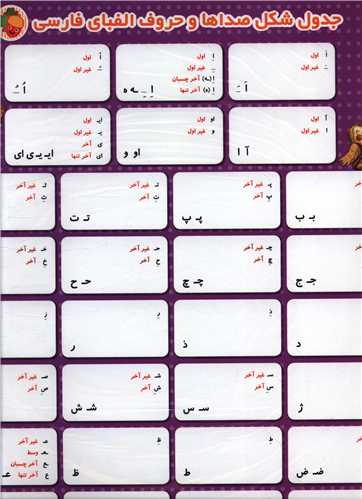 جدول شکل صداها و حروف الفبای فارسی
اَ اول
ـَ غیر اول
اَ ـَ
اِ اول
ـِ غیر اول
(ـه) آخر چسبان
(ه) آخر تنها
اِ ـِ ـه ه
اُ اول
ـُ غیر اول
اُ ـُ
آ اول
ا غیر اول
آ ا
او اول
و غیر اول
او و
ایـ اول
یـ غیر اول
ی آخر
ای آخر تنها
ایـ یـ ی ای
بـ ب
پـ غیر آخر
پ آخر
پـ پ
تـ غیر آخر
ت آخر
تـ ت
جـ ج
چـ غیر آخر
چ آخر
چـ چ
حـ غیر آخر
ح آخر
حـ ح
خـ غیر آخر
خ آخر
د
ذ
ر
ژ
سـ غیر آخر
س آخر
سـ س
شـ غیر آخر
ش آخر
شـ ش
صـ غیر آخر
ص آخر
ضـ ض
ط
ظ
عـ غیر آخر
ـعـ وسط
ـع آخر چسبان
ع آخر تنها